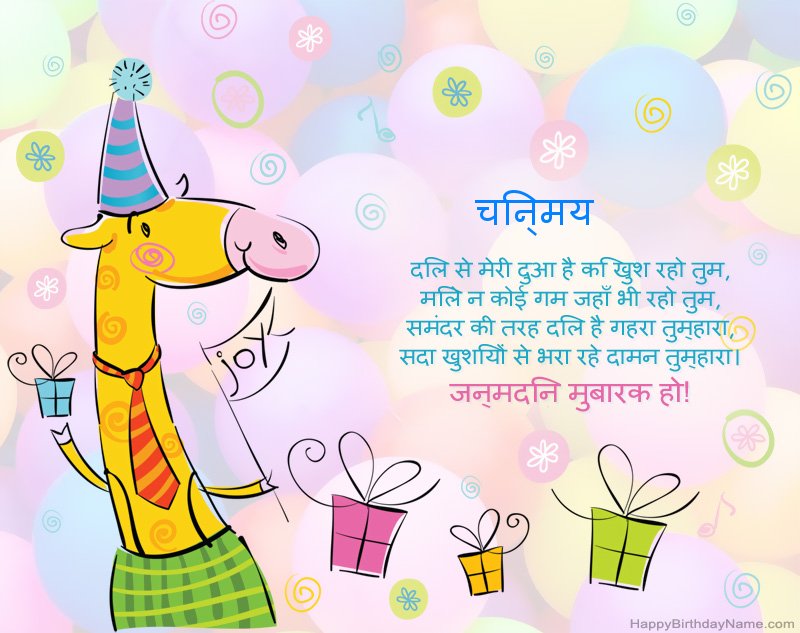 चिन्मय
दिल से मेरी दुआ है कि खुश रहो तुम,
मिले न कोई गम जहाँ भी रहो तुम,
समंदर की तरह दिल है गहरा तुम्हारा,
सदा खुशियों से भरा रहे दामन तुम्हारा।
जन्मदिन मुबारक हो!
joy
HappyBirthdayName.com